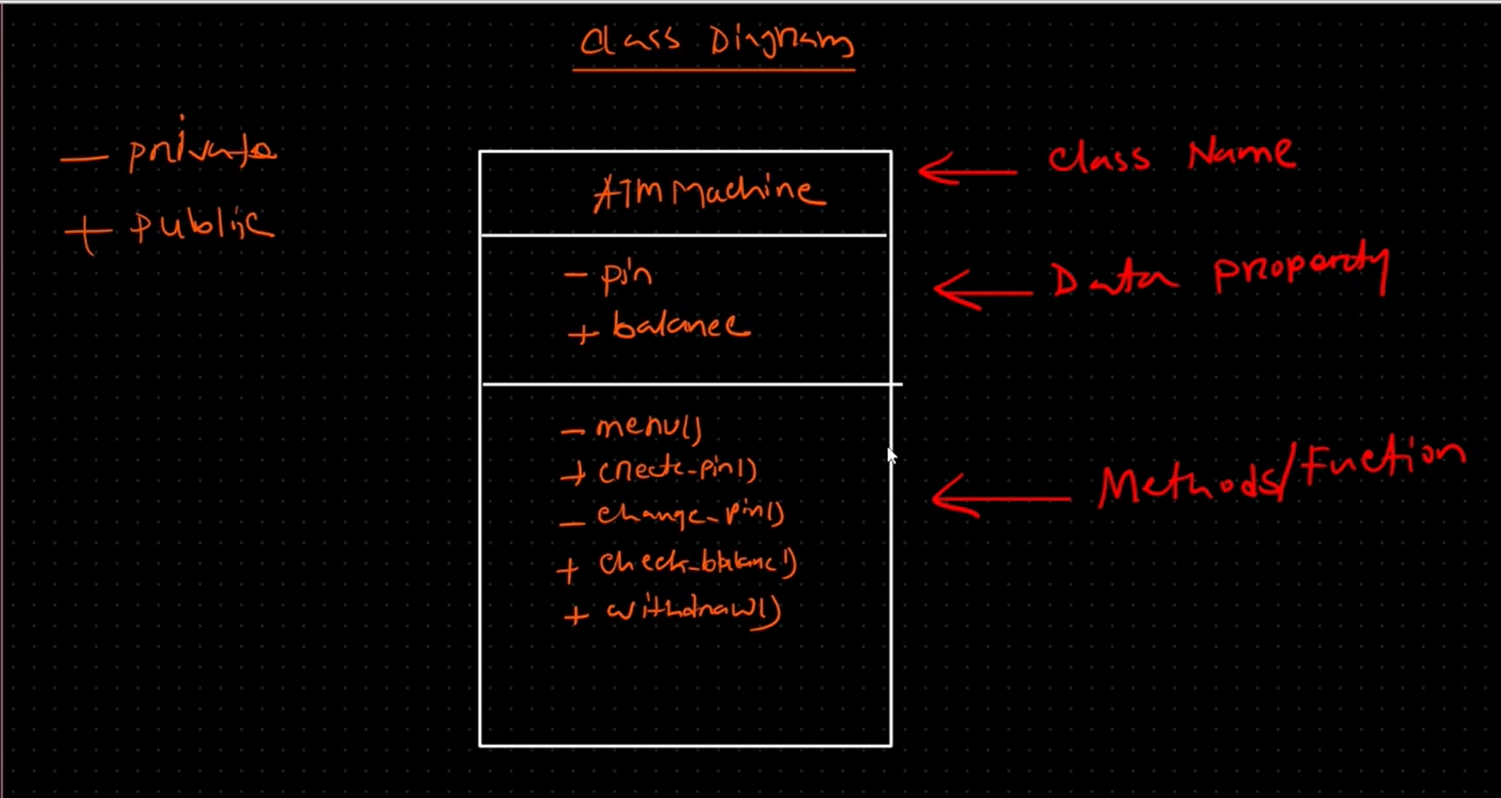 Class Diagram
- private
+ public
ATM Machine
- pin
+ balance
- menu()
+ create_pin()
- change_pin()
+ check_balanc()
+ withdraw()
← Class Name
← Data property
← Methods/Fuction